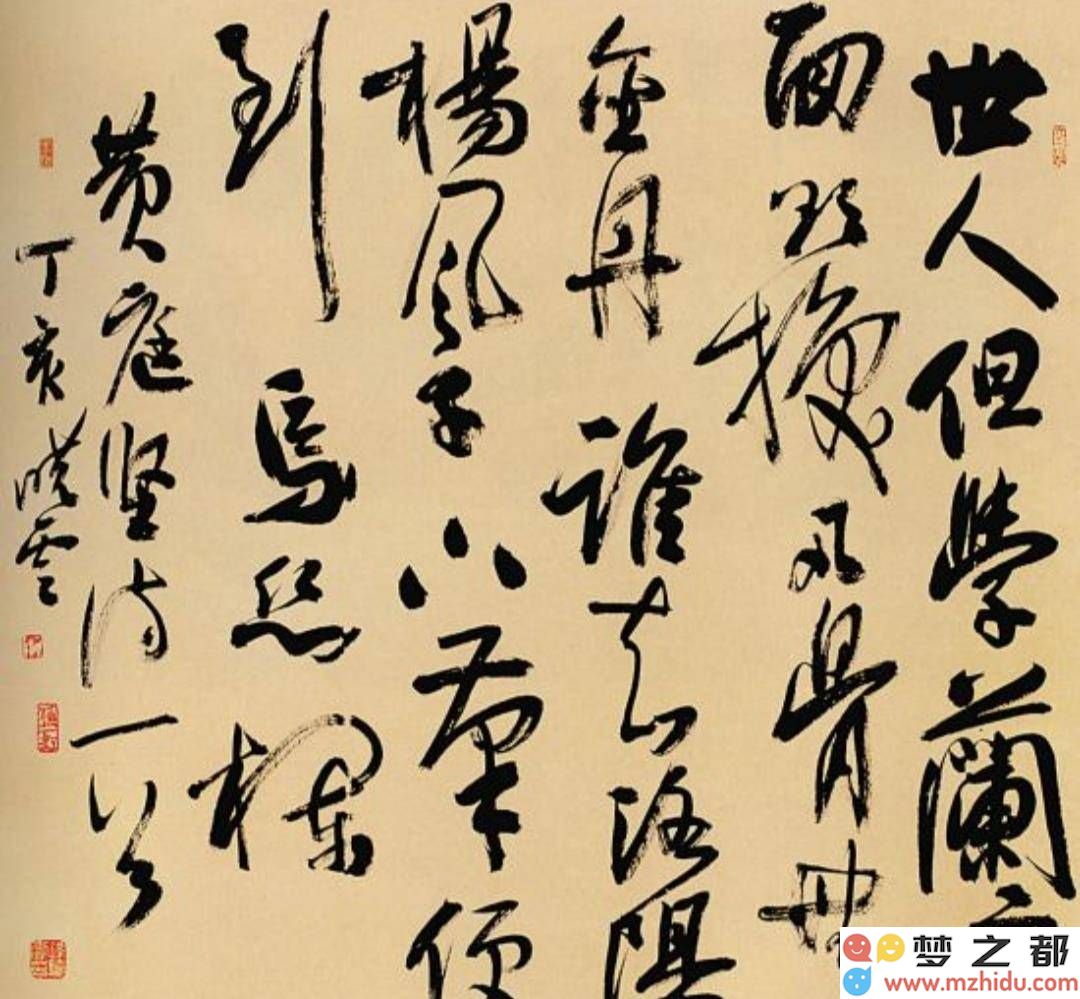 世人但學蘭
面欲換凡骨無
金丹誰知洛陽
楊風子下筆便
到烏絲欄
黄庭坚诗一首
丁亥曉雲
梦之都
www.mzhidu.com